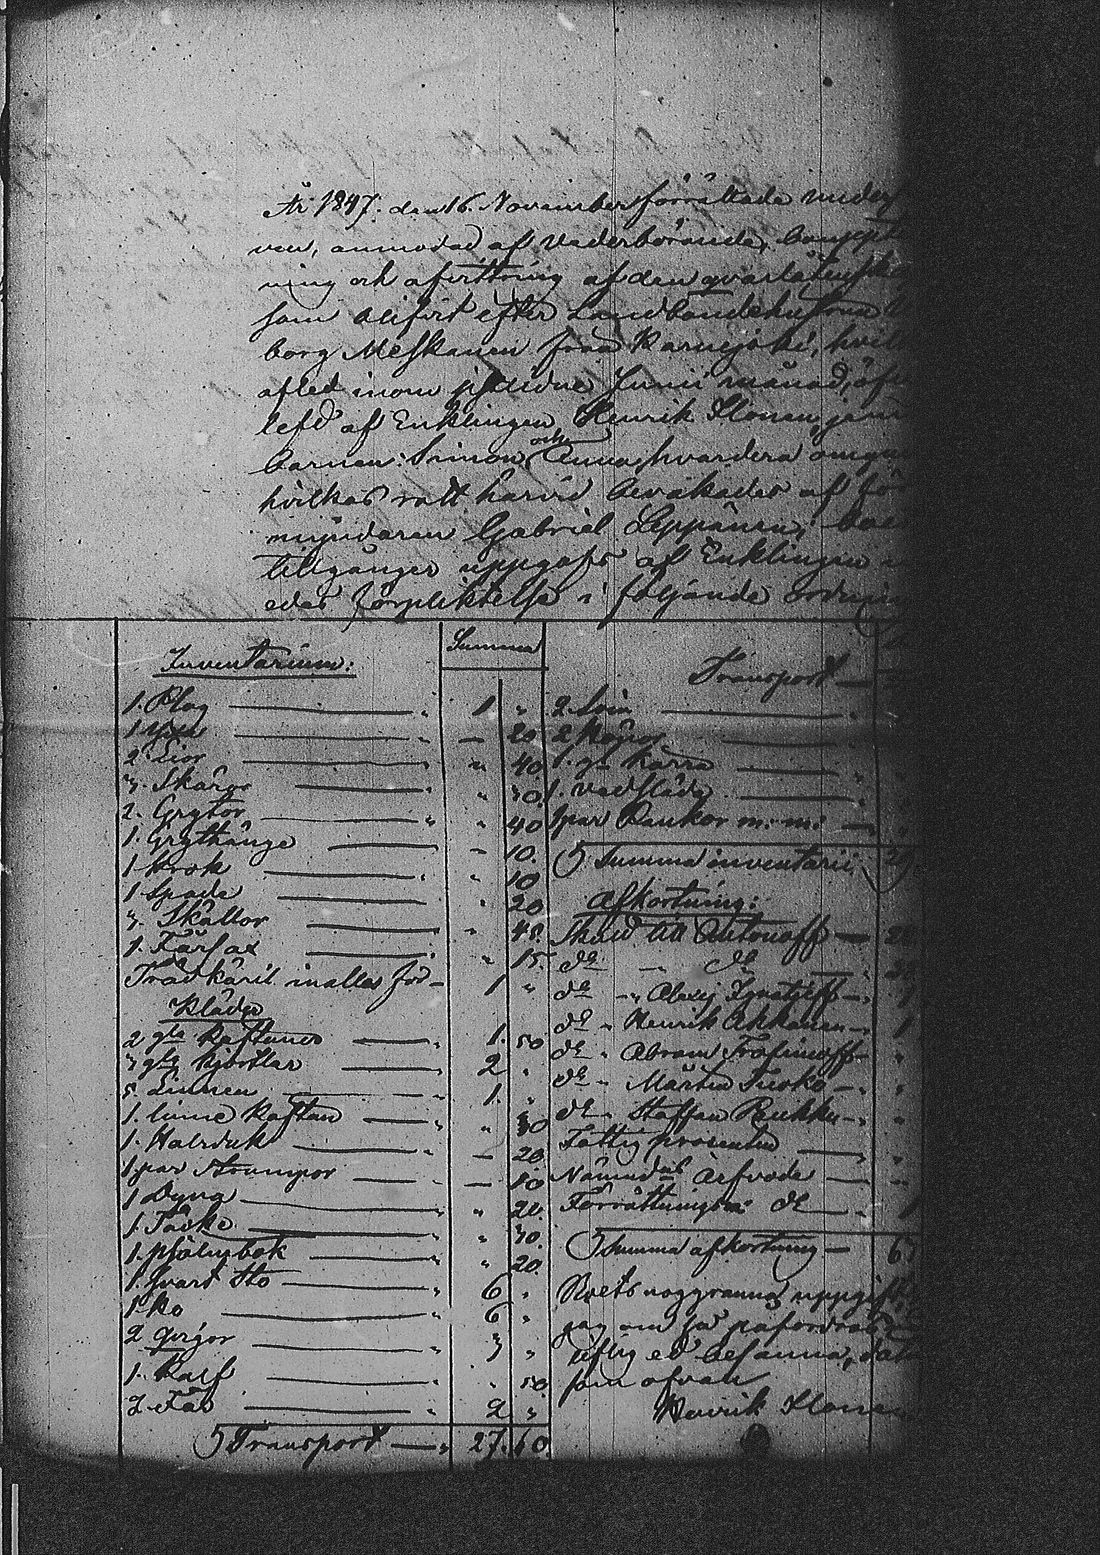 År 1847. den 16. November förrättade under
ven, anmodad af vederbörande, bouppt
ning och afvittring af den qvarlåtenska
som blifvit efter Landbondehustrun
borg Meskanen från Karnejoki, hvil
afled inom sistledne Junii månad,
lefd af Enklingen Henrik Ilonen, jem
barnen: Simon och Anna, hvardera omyn
hvilkas rätt härvid bevakades af för
myndaren Gabriel Leppänen; boe
tillgångar uppgafs af Enklingen
edes förpliktelse i följande ordnin
Inventarium: Summa
1. Plog 1 "
1 20
2 Lior " 40
3. Skäror " 30.
2. Grytor " 40
1. Grythänge 10.
1 Krok " 10
1 Spade " 20
3. Skällor " 45.
1. Fårsax " 15.
Trädkäril inalles för 1 "
Kläder
2 gla Kaftaner 1. 50
3 gla Kjortlar 2 "
5. Linnen 1. "
1. linne Kaftan " 30
1. Halsduk 20.
1 par strumpor 10
1 Dyna " 20.
1. Täcke " 30.
1. psalmbok " 20
1. svart Sto 6 "
1. Ko 6 "
2 qvigor 3 "
1. Kalf " 50
2 Får 2 "
Transport 27. 60.
Transport
2 Svin
2
1. gl. Kärra
1.
1 par Rankor m: m:
Summa inventarii
Afkortning:
Skuld till Antonoff
do do
do " Alexej Ignatjeff
do " Henrik Akkanen
do " Abram Trofimoff
do " Mårten Tusko
do " Staffan Pukku
Fattig procenten
Nämndens Arfvode
Förrättnings: do
Summa afkortning 6
Boets noggranna uppgift
jag om så påfordras
liflig ed besanna, datu
som ofvan
Henrik Ilone